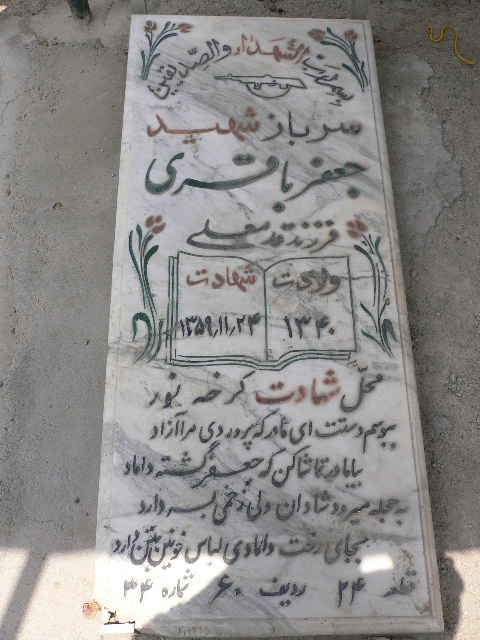 بسم رب الشهداء والصدیقین
سرباز شهید
جعفر باقری
فرزند قدمعلی
ولادت
۱۳۴۰
شهادت
۱۳۵۹/۱۱/۲۴
محل شهادت کرخه نور
ببوسم دستت ای مادر که پروردی مرا آزاد
بیا مادر تماشا کن که جعفر گشته داماد
به حجله میرود شادان ولی زخمی بسر دارد
بجای رخت دامادی لباس خونین بتن دارد
قطعه ۲۴ ردیف ۶۰ شماره ۳۴